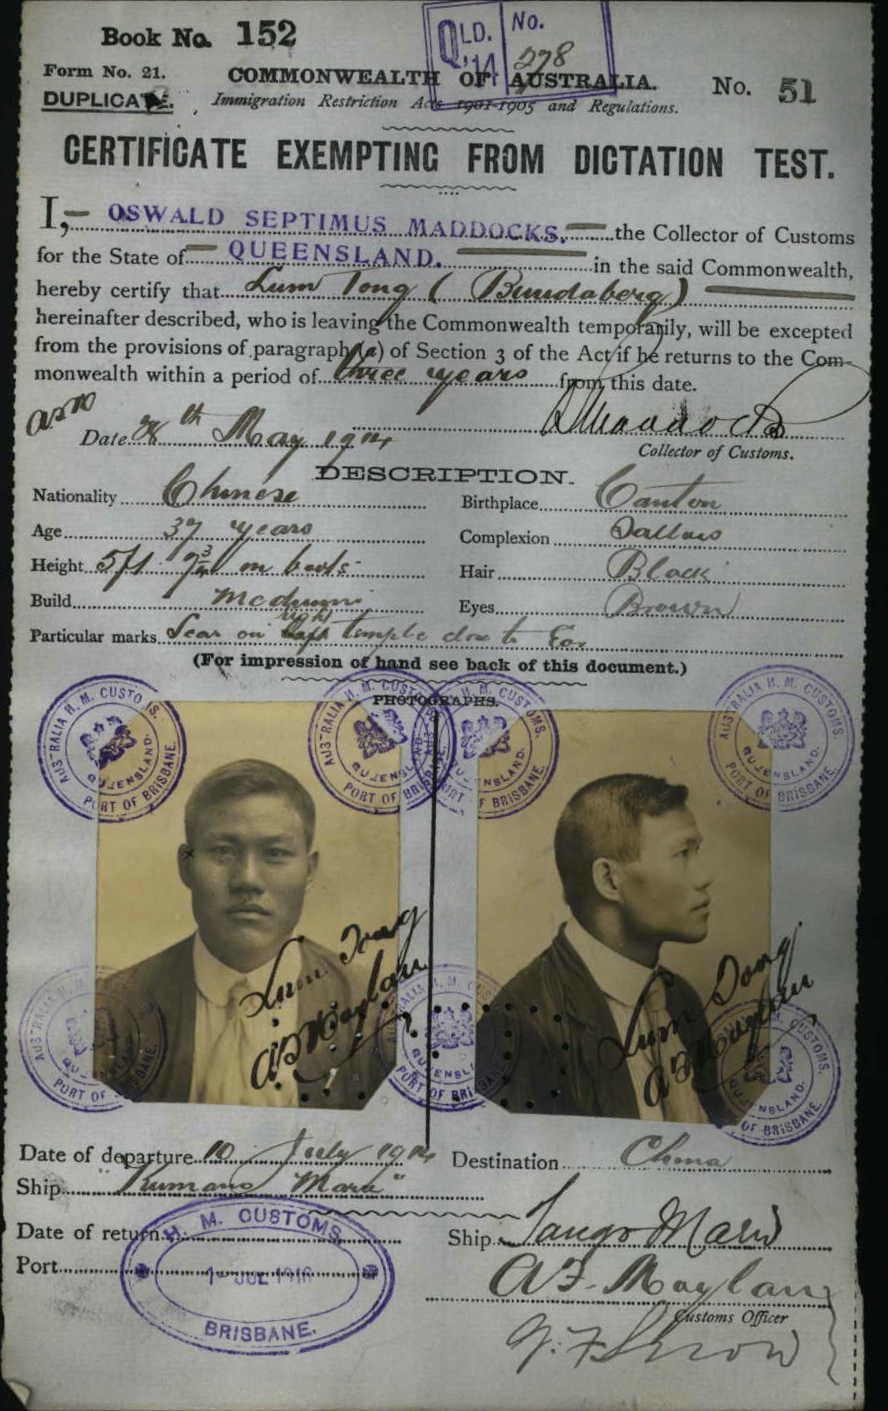 Book No. 152
QLD. No.
'14 278
Form No. 21. COMMONWEALTH OF AUSTRALIA. No. 51
DUPLICATE. Immigration Restriction Acts 1901-1905 and Regulations.
CERTIFICATE EXEMPTING FROM DICTATION TEST.
I, OSWALD SEPTIMUS MADDOCKS, the Collector of Customs
for the State of QUEENSLAND. in the said Commonwealth,
hereby certify that Lum Tong (Bundaberg)
hereinafter described, who is leaving the Commonwealth temporarily, will be excepted
from the provisions of paragraph (a) of Section 3 of the Act if he returns to the Com-
monwealth within a period of three years from this date.
Date May 1914
Collector of Customs.
DESCRIPTION.
Nationality Chinese Birthplace Canton
Age 37 years Complexion Sallow
Height 5ft 7¾ in boots Hair Black
Build Medium Eyes Brown
Particular marks Scar on right temple close to Ear
(For impression of hand see back of this document.)
PHOTOGRAPHS.
AUSTRALIA H. M. CUSTOMS. QUEENSLAND. PORT OF BRISBANE.
AUSTRALIA H. M. CUSTOMS. QUEENSLAND. PORT OF BRISBANE.
AUSTRALIA H. M. CUSTOMS. QUEENSLAND. PORT OF BRISBANE.
AUSTRALIA H. M. CUSTOMS. QUEENSLAND. PORT OF BRISBANE.
Lum Tong
Lum Dong
Date of departure 10 July 1914 Destination China
Ship "Kumano Maru"
Date of return Ship Tango Maru
Port
H. M. CUSTOMS
1 - JUL 1916
BRISBANE.
Customs Officer